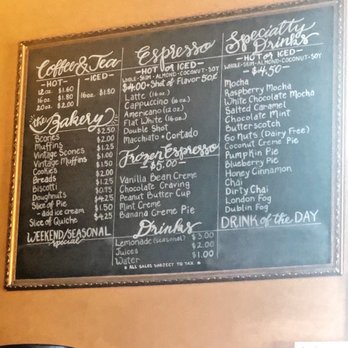 Coffee & Tea
- HOT - - ICED -
12 oz. $1.60
16 oz. $1.80 16 oz. $1.80
20 oz. $2.00
the Bakery
Scones $2.50
Muffins $2.00
Vintage Scones
Vintage Muffins
Cookies $2.00
Breads $1.25
Biscotti $0.75
Doughnuts
Slice of Pie
- add ice cream
Slice of Quiche $4.25
WEEKEND/SEASONAL
Specials
Espresso
- HOT or ICED -
WHOLE-SKIM-ALMOND-COCONUT-SOY
$4.00 + Shot of Flavor 50¢
Latte (16 oz.)
Cappuccino (16 oz.)
Americano (12 oz.)
Flat White (16 oz.)
Double Shot
Macchiato • Cortado
Frozen Espresso
- $5.00 -
Vanilla Bean Creme
Chocolate Craving
Peanut Butter Cup
Mint Creme
Banana Creme Pie
Drinks
Lemonade (seasonal) $3.00
Juices $2.00
Water $1.00
* ALL SALES SUBJECT TO TAX *
Specialty
Drinks
- HOT or ICED -
WHOLE-SKIM-ALMOND-COCONUT-SOY
- $4.50 -
Mocha
Raspberry Mocha
White Chocolate Mocha
Salted Caramel
Chocolate Mint
Butterscotch
Go Nuts (Dairy Free)
Coconut Creme Pie
Pumpkin Pie
Blueberry Pie
Honey Cinnamon
Chai
Dirty Chai
London Fog
Dublin Fog
DRINK of the DAY